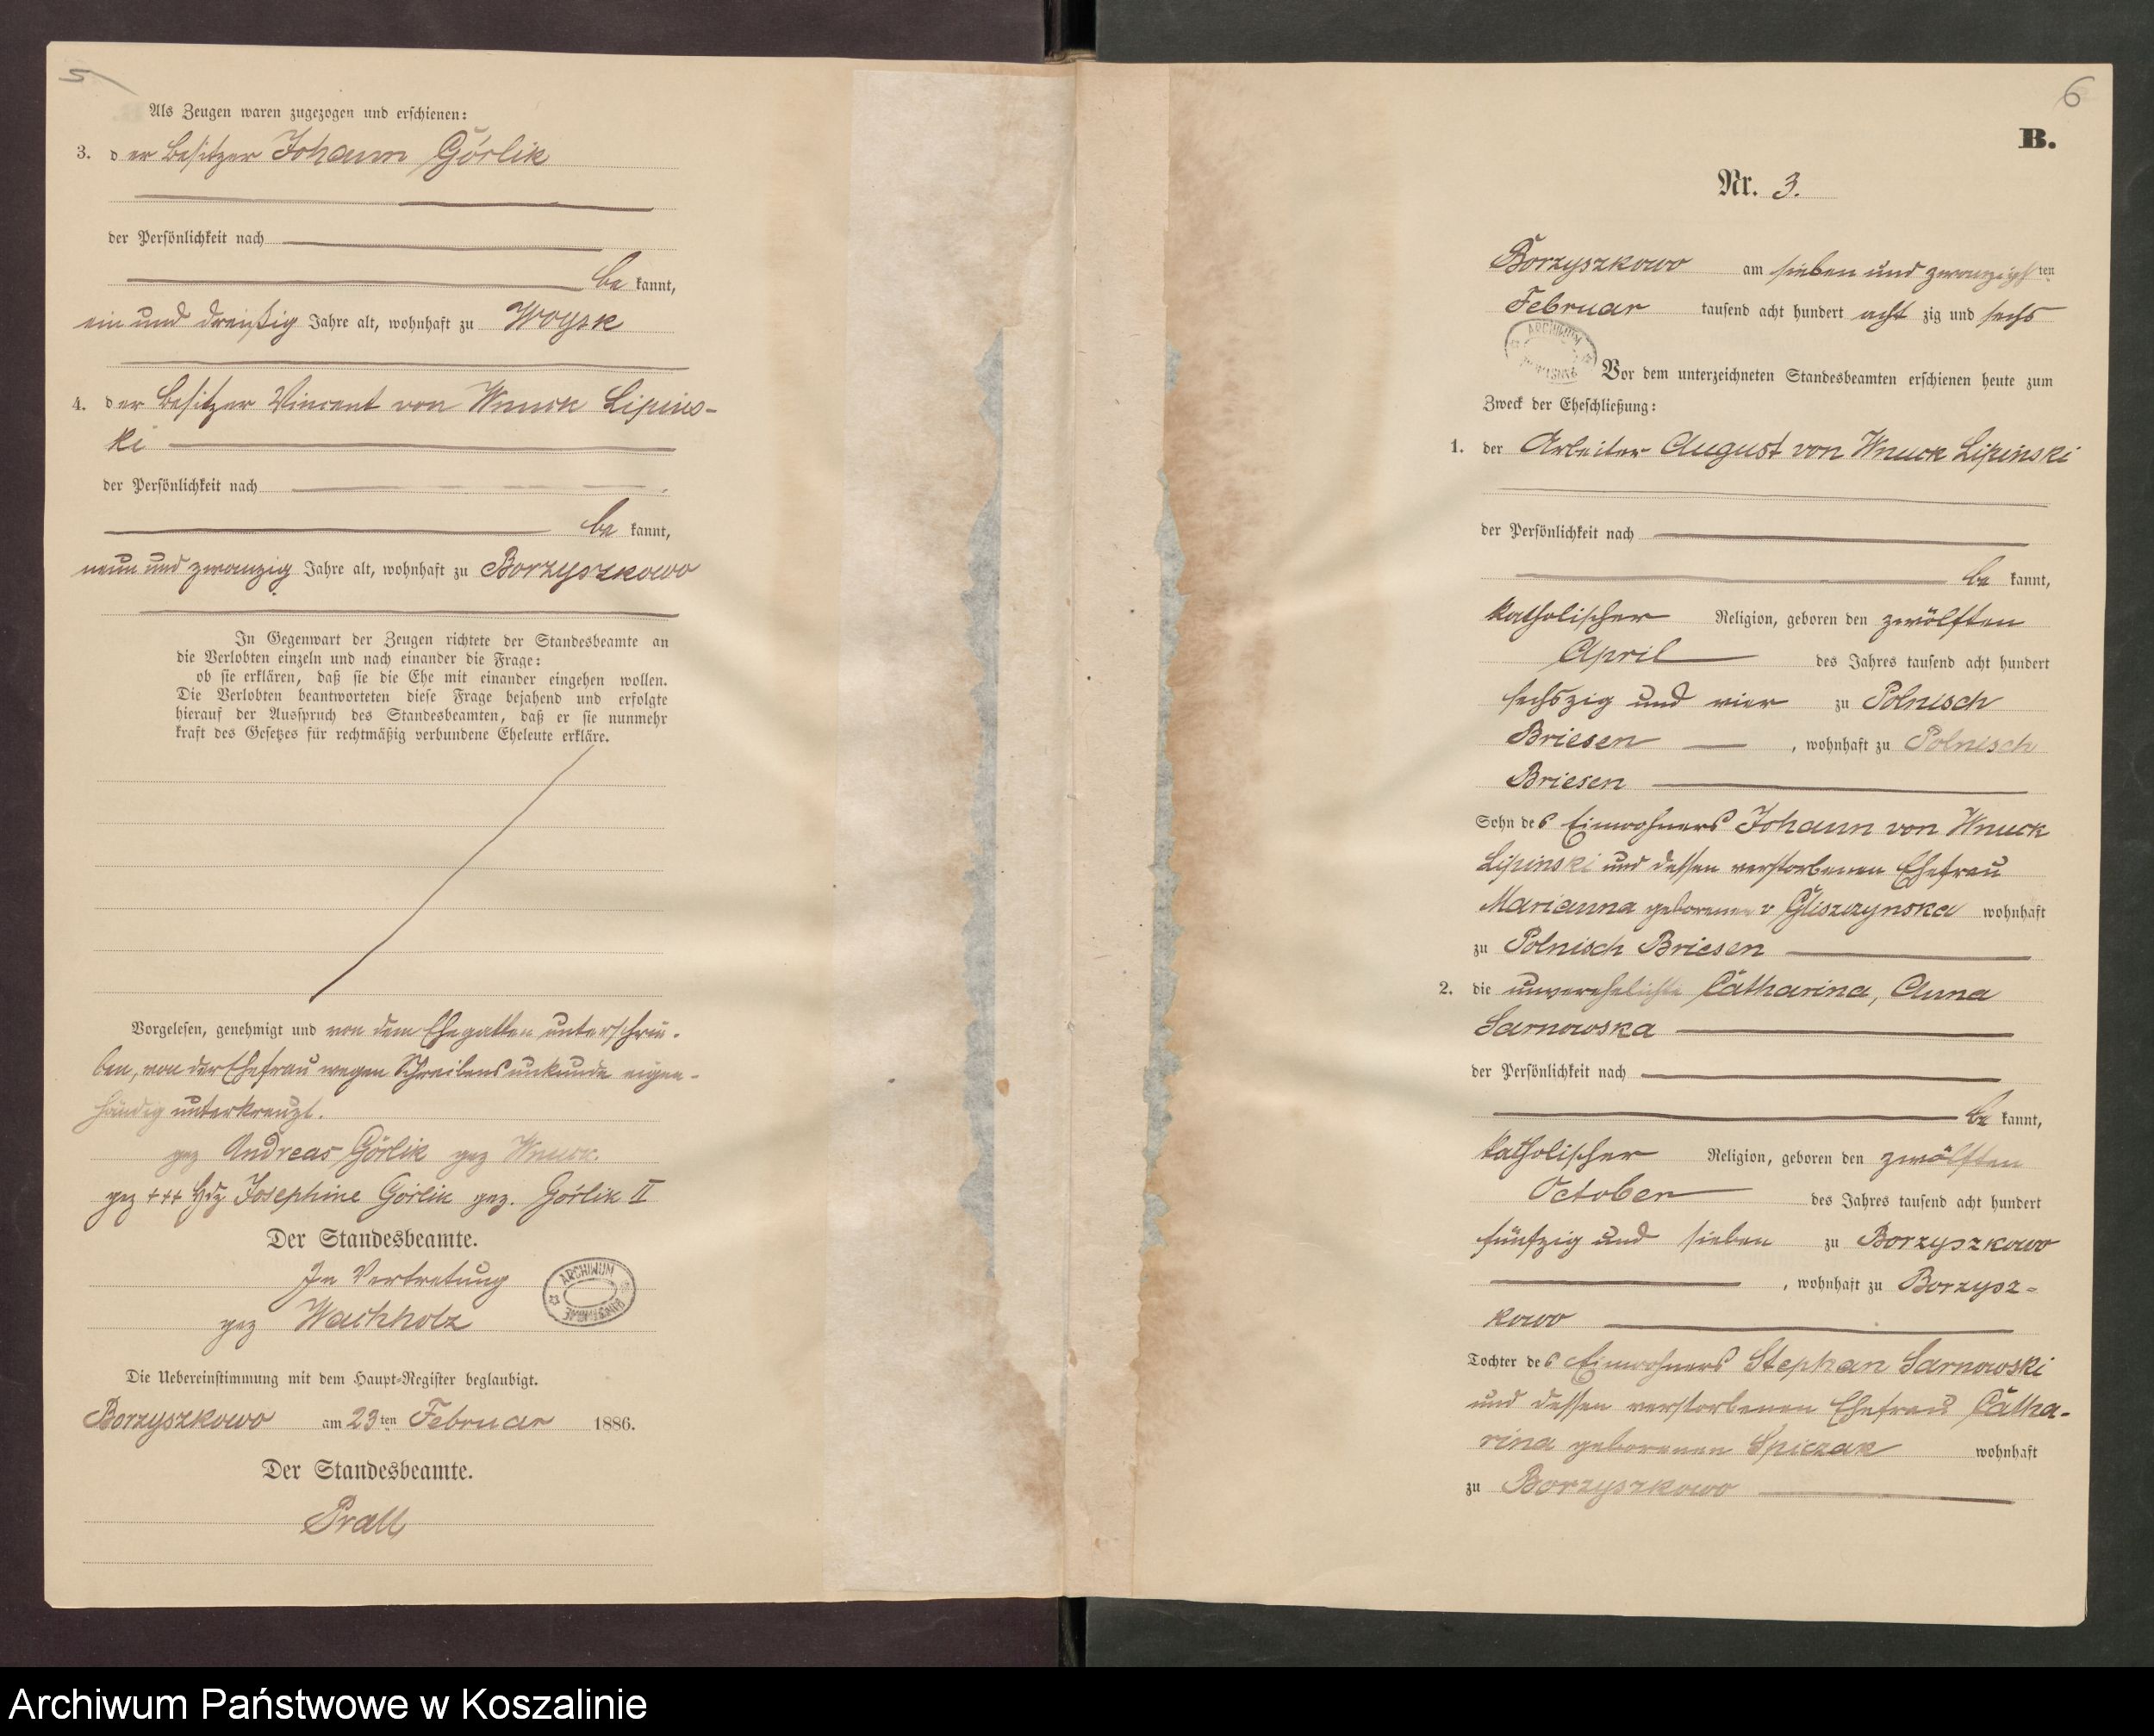 5
Als Zeugen waren zugezogen und erschienen:
3. der Besitzer Johann Görlik
der Persönlichkeit nach
be kannt,
ein und dreißig Jahre alt, wohnhaft zu Woysk
4. der Besitzer Vincent von Wnuck Lipins-
ki
der Persönlichkeit nach
be kannt,
neun und zwanzig Jahre alt, wohnhaft zu Borzyszkowo
In Gegenwart der Zeugen richtete der Standesbeamte an
die Verlobten einzeln und nach einander die Frage:
ob sie erklären, daß sie die Ehe mit einander eingehen wollen.
Die Verlobten beantworteten diese Frage bejahend und erfolgte
hierauf der Ausspruch des Standesbeamten, daß er sie nunmehr
kraft des Gesetzes für rechtmäßig verbundene Eheleute erkläre.
Vorgelesen, genehmigt und von dem Ehegatten unterschrie-
ben, von der Ehefrau wegen Schreibensunkunde eigen-
händig unterkreuzt.
gez Andreas Görlik gez Wnuck.
gez +++ Hdz Josephine Görlik gez. Görlik II
Der Standesbeamte.
In Vertretung
gez Wachholz
ARCHIWUM
Die Uebereinstimmung mit dem Haupt-Register beglaubigt.
Borzyszkowo am 23ten Februar 1886.
Der Standesbeamte.
Prall
6
B.
Nr. 3.
Borzyszkowo am sieben und zwanzigsten
Februar tausend acht hundert acht zig und sechs
ARCHIWUM
Vor dem unterzeichneten Standesbeamten erschienen heute zum
Zweck der Eheschließung:
1. der Arbeiter August von Wnuck Lipinski
der Persönlichkeit nach
be kannt,
katholischer Religion, geboren den zwölften
April des Jahres tausend acht hundert
sechszig und vier zu Polnisch
Briesen, wohnhaft zu Polnisch
Briesen
Sohn des Einwohners Johann von Wnuck
Lipinski und dessen verstorbenen Ehefrau
Marianna geborenen v Gliszczynska wohnhaft
zu Polnisch Briesen
2. die unverehelichte Catharina, Anna
Sarnowska
der Persönlichkeit nach
be kannt,
katholischer Religion, geboren den zwölften
October des Jahres tausend acht hundert
fünfzig und sieben zu Borzyszkowo
, wohnhaft zu Borzysz-
kowo
Tochter des Einwohners Stephan Sarnowski
und dessen verstorbenen Ehefrau Catha-
rina geborenen Spiczak wohnhaft
zu Borzyszkowo
Archiwum Państwowe w Koszalinie